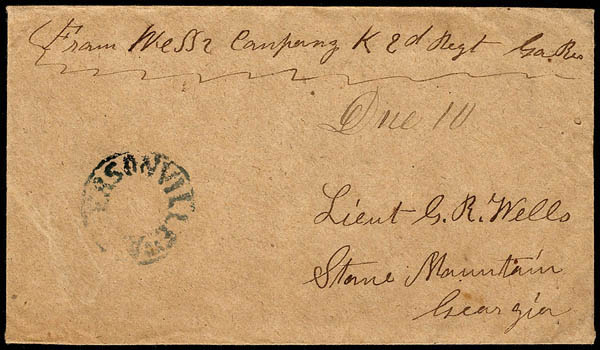 From Wells Company K 2d Regt Ga. Res
Due 10
ERSONVILLE
Lieut G. R. Wells
Stone Mountain
Georgia